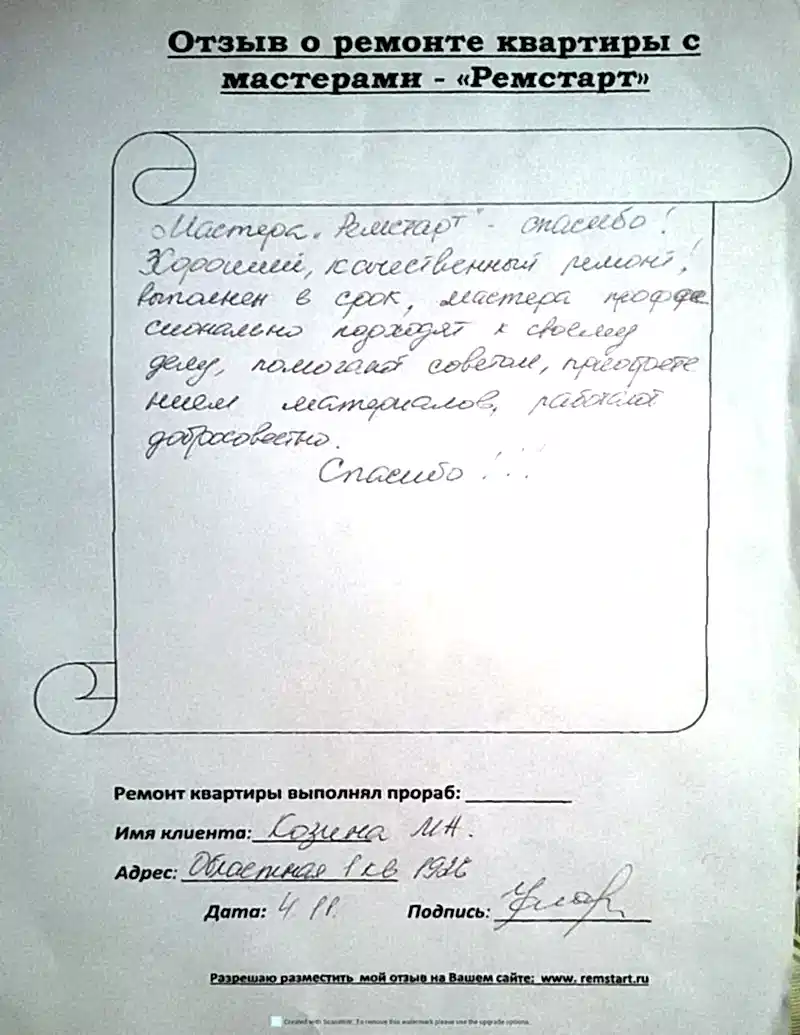 Отзыв о ремонте квартиры с
мастерами - «Ремстарт»
Мастера „Ремстарт" - спасибо!
Хороший, качественный ремонт!
выполнен в срок, мастера проффе
сионально подходят к своему
делу, помогают советом, приобрете
нием материалов, работают
добросовестно.
Спасибо!!!
Ремонт квартиры выполнял прораб:
Имя клиента: Козина М.А.
Адрес: Областная 1 кв
Дата: 4
Подпись:
Разрешаю разместить мой отзыв на Вашем сайте: www. remstart.ru
Created with ScanWritr. To remove this watermark please use the upgrade options.